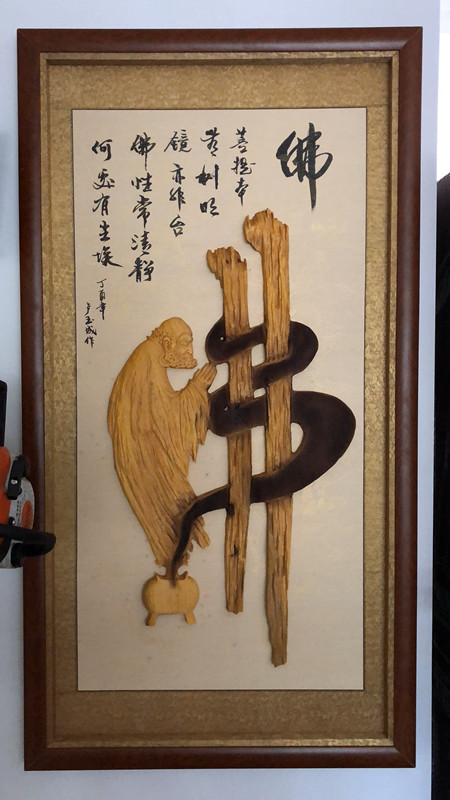 佛
菩提本
无树明
镜亦非台
佛性常清静
何处有尘埃
丁酉年
玉成作